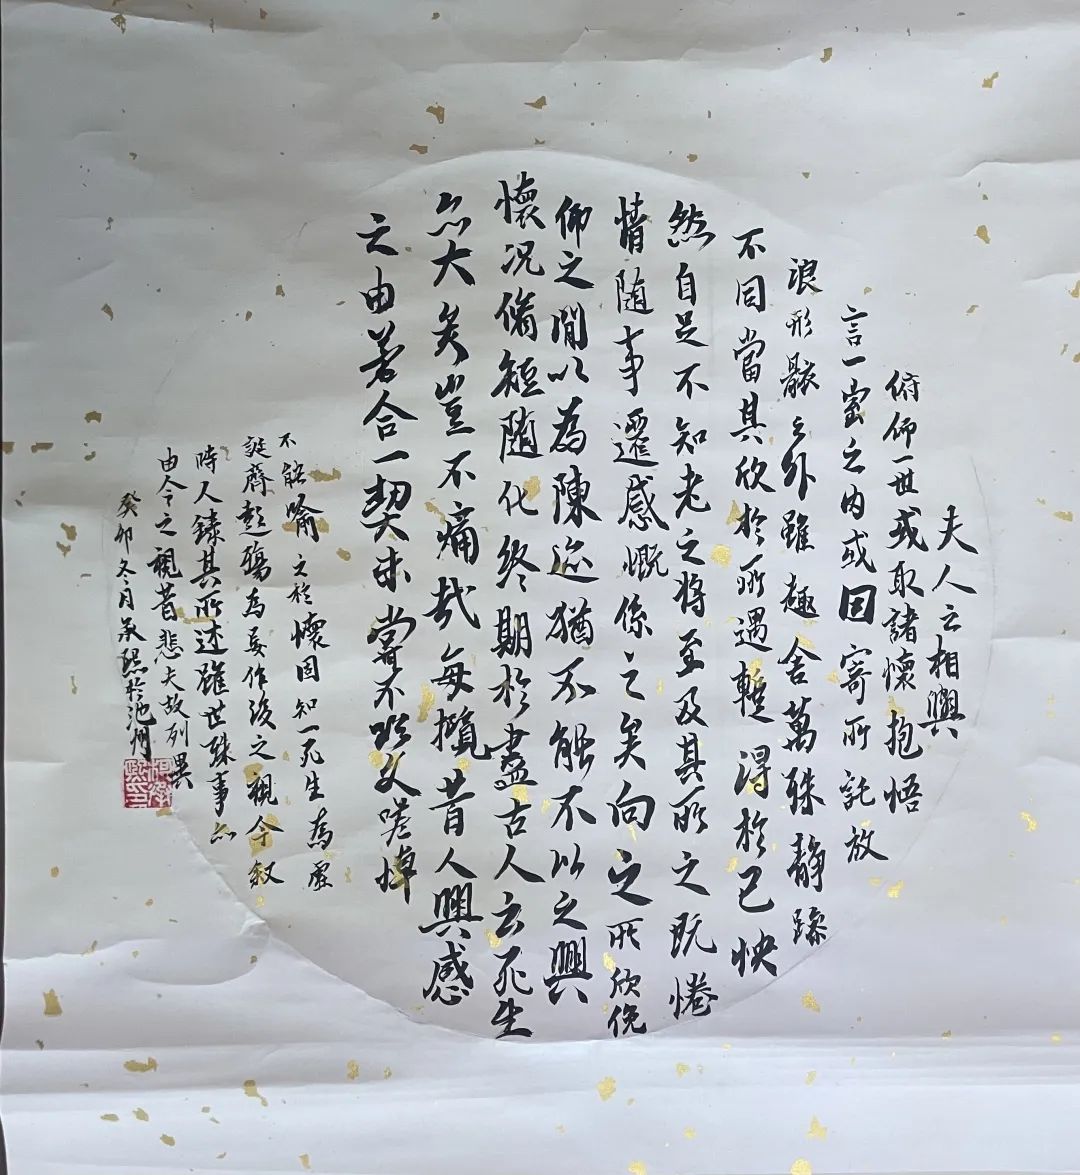 夫人之相與
俯仰一世或取諸懷抱悟
言一室之内或因寄所託放
浪形骸之外雖趣舍萬殊靜躁
不同當其欣於所遇暫得於己怏
然自足不知老之將至及其所之既惓
情随事遷感慨係之矣向之所欣俛
仰之閒以為陳迹猶不能不以之興
懷況脩短随化終期於盡古人云死生
亦大矣豈不痛哉每攬昔人興感
之由若合一契未嘗不臨文嗟悼
不能喻之於懷固知一死生為虛
誕齊彭殤為妄作後之視今敘
時人錄其所述雖世殊事亦
由今之視昔悲夫故列異
癸卯冬月承熙於池州